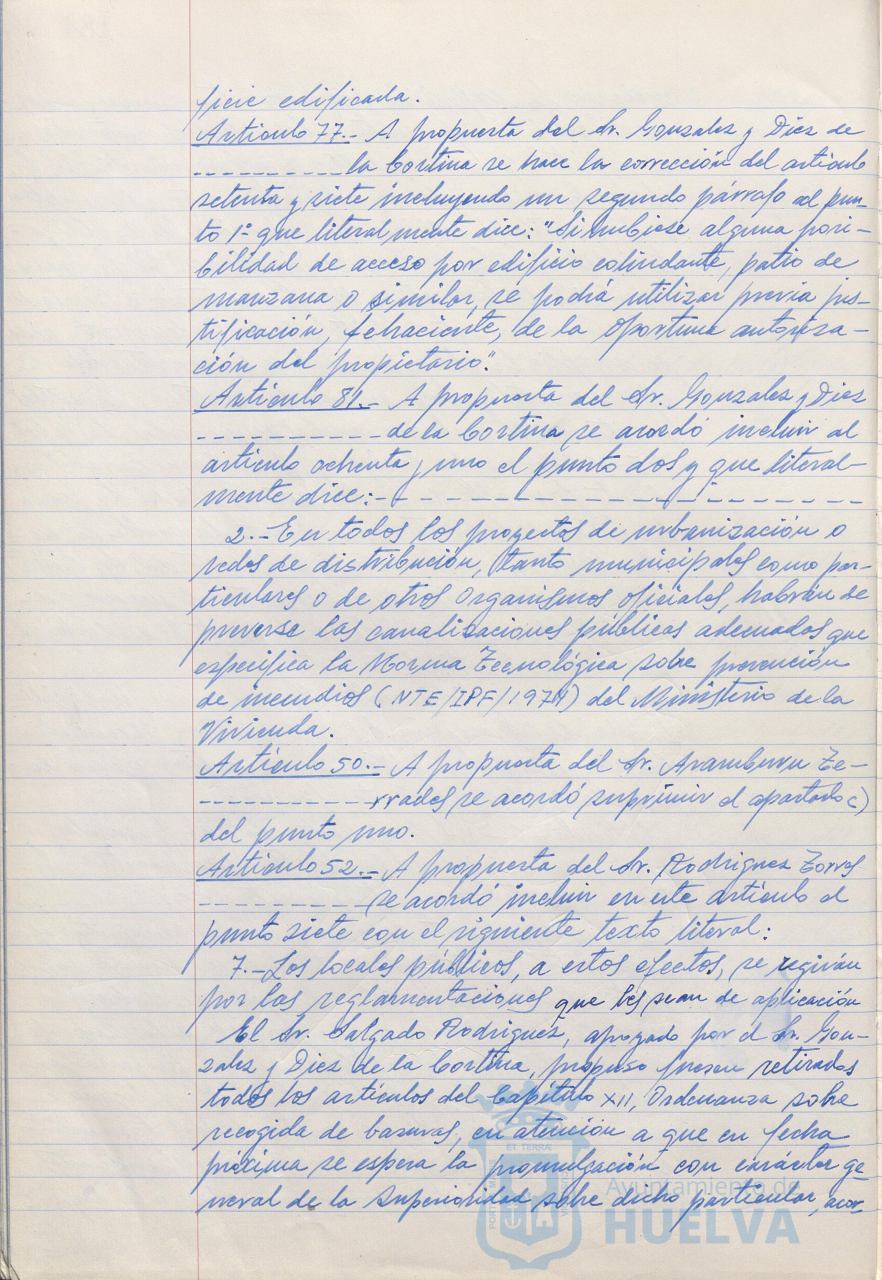 ficie edificada.
Artículo 77.- A propuesta del Sr. Gonzalez y Diez de
----------la Cortina se hace la corrección del artículo
setenta y siete incluyendo un segundo párrafo al pun-
to 1º que literalmente dice: "Si hubiese alguna posi-
bilidad de acceso por edificio colindante, patio de
manzana o similar, se podrá utilizar previa jus-
tificación, fehaciente, de la oportuna autoriza-
ción del propietario".
Artículo 81.- A propuesta del Sr. Gonzalez y Diez
-----------de la Cortina se acordó incluir al
artículo ochenta y uno el punto dos y que literal-
mente dice:- - - - - - - - - - - - - - - - - -
2.- En todos los proyectos de urbanización o
redes de distribución, tanto municipales como par-
ticulares o de otros Organismos oficiales, habrán de
preverse las canalizaciones públicas adecuadas que
especifica la Norma Tecnológica sobre prevención
de incendios (NTE/IPF/1974) del Ministerio de la
Vivienda.
Artículo 50.- A propuesta del Sr. Aramburu Te-
-----------rrades se acordó suprimir el apartado c)
del punto uno.
Artículo 52.- A propuesta del Sr. Rodriguez Torres
-----------se acordó incluir en este artículo el
punto siete con el siguiente texto literal:
7.- Los locales públicos, a estos efectos, se regirán
por las reglamentaciones que les sean de aplicación
El Sr. Salgado Rodriguez, apoyado por el Sr. Gon-
zalez y Diez de la Cortina, propuso fuesen retirados
todos los artículos del Capítulo XII, Ordenanza sobre
recogida de basuras, en atención a que en fecha
próxima se espera la promulgación con carácter ge
neral de la Superioridad sobre dicho particular, acor-
Ayuntamiento de
HUELVA